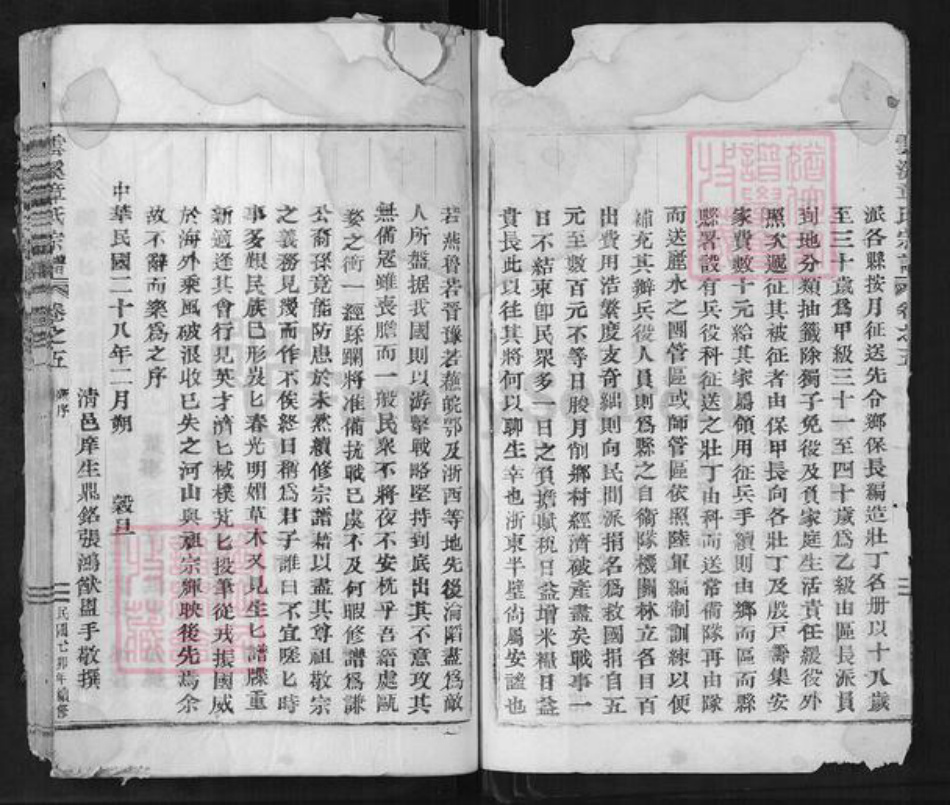 派各縣按月征送先令鄉保長編造壯丁名册以十八歲
至三十歲爲甲級三十一至四十歲爲乙級由區長派員
到地分類抽籤除獨子免役及負家庭生活責任緩役外
照次遞征其被征者由保甲長向各壯丁及殷戸籌集安
家費數十元給其家屬領用征兵手續則由鄉而區而縣
縣署設有兵役科征送之壯丁由科而送常備隊再由隊
而送麗水之團管區或師管區依照陸軍編制訓練以便
補充其辦兵役人員則爲縣之自衛隊機關林立各目百
出費用浩繁度支奇絀則向民間派捐名爲救國捐自五
元至數百元不等日朘月削鄉村經濟破產盡矣戰事一
日不結束卽民眾多一日之負擔賦稅日益增米糧日益
貴長此以往其將何以聊生幸也浙東半壁尙屬安謐也
若燕魯若晉豫若蘇皖鄂及浙西等地先後淪陷盡爲敵
人所盤据我國則以游擊戰略堅持到底出其不意攻其
無備寇雖喪膽而一般民衆不將夜不安枕乎吾縉處甌
婺之衝一經蹂躪將准備抗戰已虞不及何暇修譜爲謙
公裔孫竟能防患於未然續修宗譜藉以盡其尊祖敬宗
之義務見幾而作不俟終日稱爲君子誰曰不宜嗟匕時
事多艱民族已形岌匕春光明媚草木又見生匕譜牒重
新適逢其會行見英才濟匕棫樸芃匕投筆從戎振國威
於海外乘風破浪收已失之河山與祖宗輝映後先焉余
故不辭而樂爲之序
中華民國二十八年二月朔 穀旦
清邑庠生鼎銘張鴻猷盥手敬撰
雲溪章氏宗譜 卷之五
序
民國己卯年續修